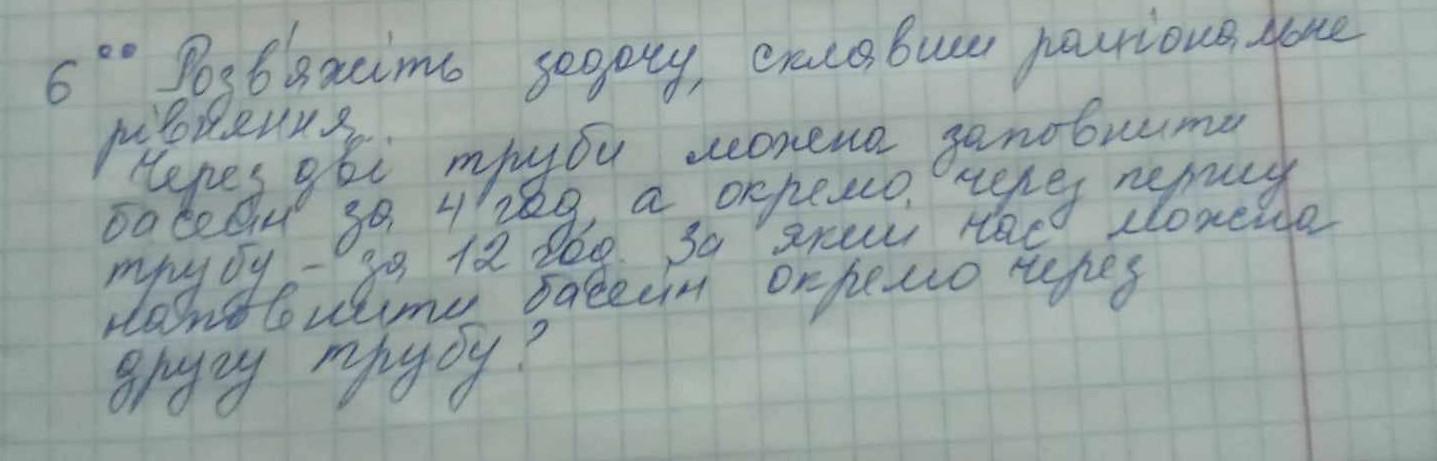 6°° Розв'яжіть задачу, склавши раціональне
рівняння.
Через дві труби можна заповнити
басейн за 4 год, а окремо через першу
трубу - за 12 год. За який час можна
наповнити басейн окремо через
другу трубу?